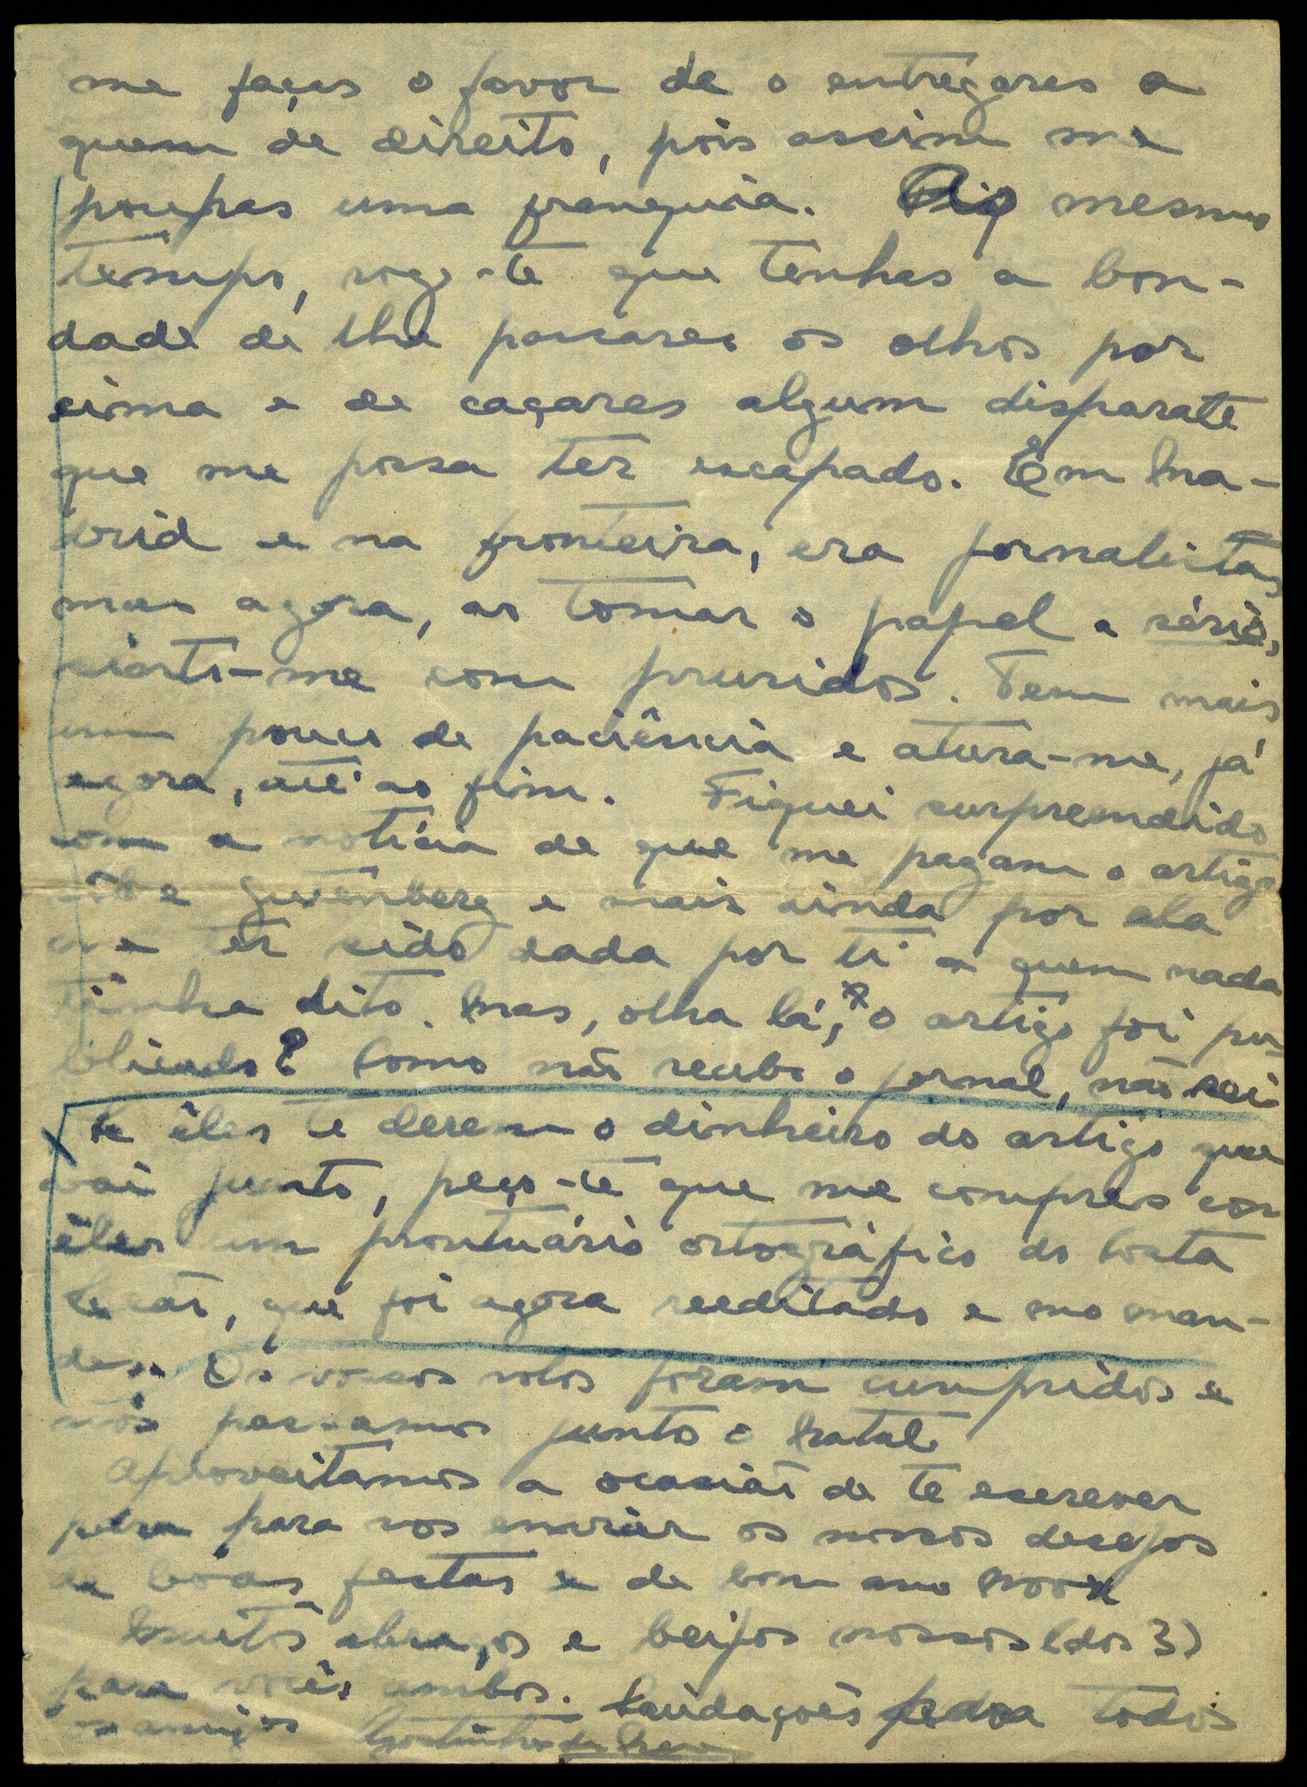 me faças o favor de o entregares a
quem de direito, pois assim me
poupas uma franquia. Ao mesmo
tempo, rogo-te que tenhas a bon-
dade de lhe passares os olhos por
cima e de caçares algum disparate
que me possa ter escapado. Em Ma-
drid e na fronteira, era jornalista,
mas agora, ao tomar o papel a sério,
sinto-me com pruridos. Tem mais
um pouco de paciência e atura-me, já
agora, até ao fim. Fiquei surpreendido
com a notícia de que me pagam o artigo
sôbre Gutenberg e mais ainda por ela
me ter sido dada por ti a quem nada
tinha dito. Mas, olha lá, o artigo foi pu-
blicado? Como não recebo o jornal, não sei
Se êles te derem o dinheiro do artigo que
vai junto, peço-te que me compres com
êles um prontuário ortográfico do Costa
Leão, que foi agora reeditado e mo man-
des. Os vossos votos foram cumpridos e
nós passamos junto o Natal.
Aproveitamos a ocasião de te escrever
para vos enviar os nossos desejos
de bôas festas e de bom ano novo
Muitos abraços e beijos nossos (dos 3)
para vocês ambos. Saudações para todos
os amigos Agostinho da Silva